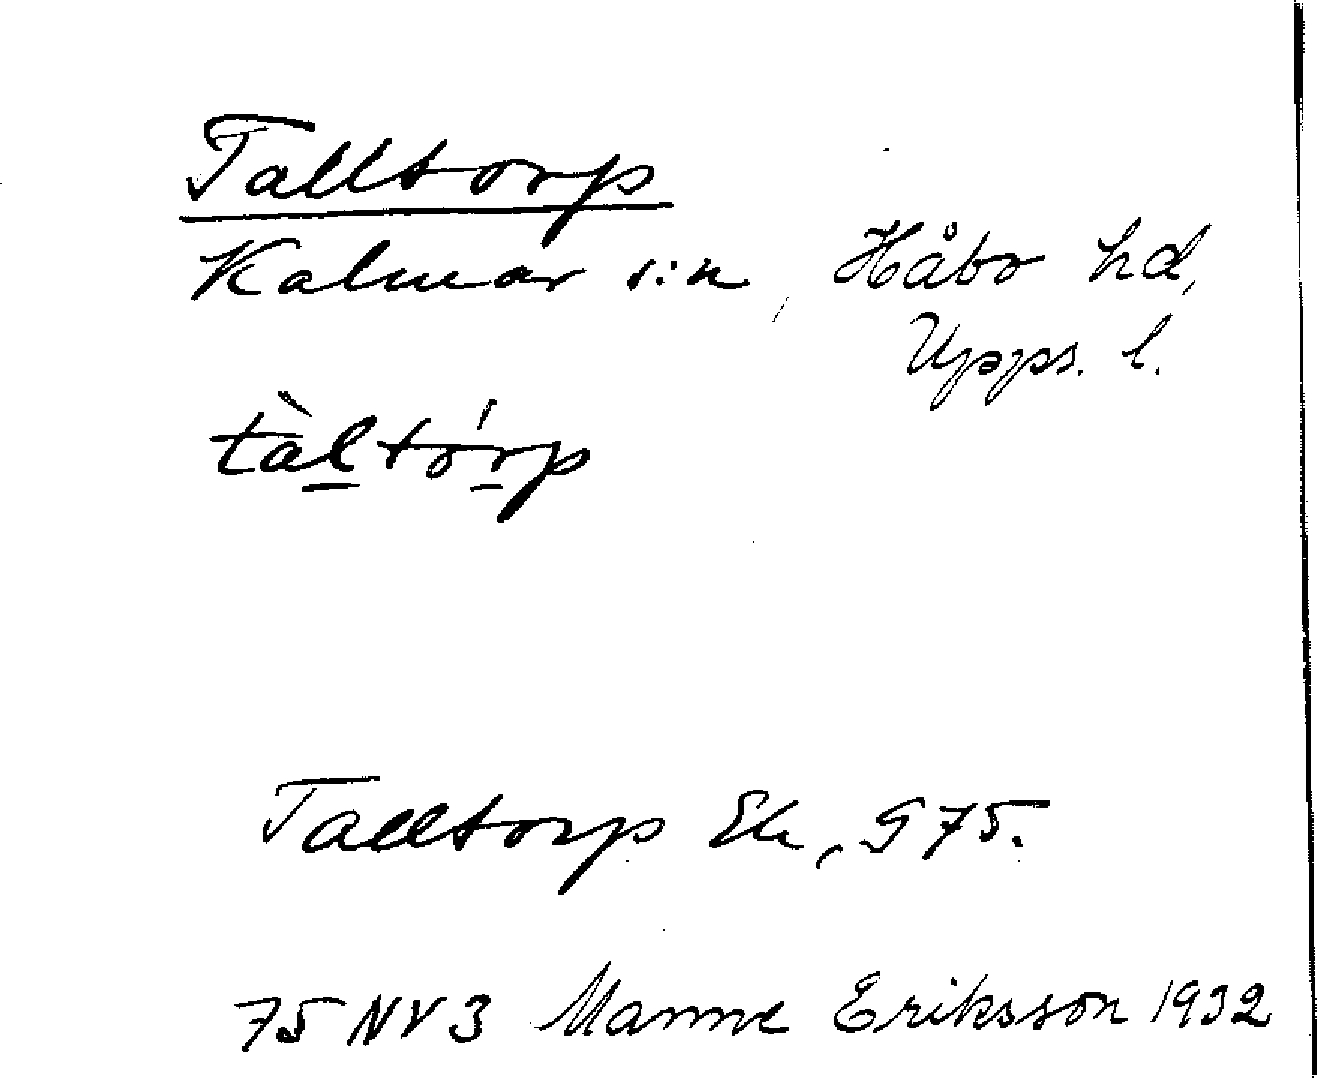 Talltorp
Kalmar s:n, Håbo hd,
Upps. l.
tàltórp
Talltorp Ek, G 75.
75 NV 3 Manne Eriksson 1932